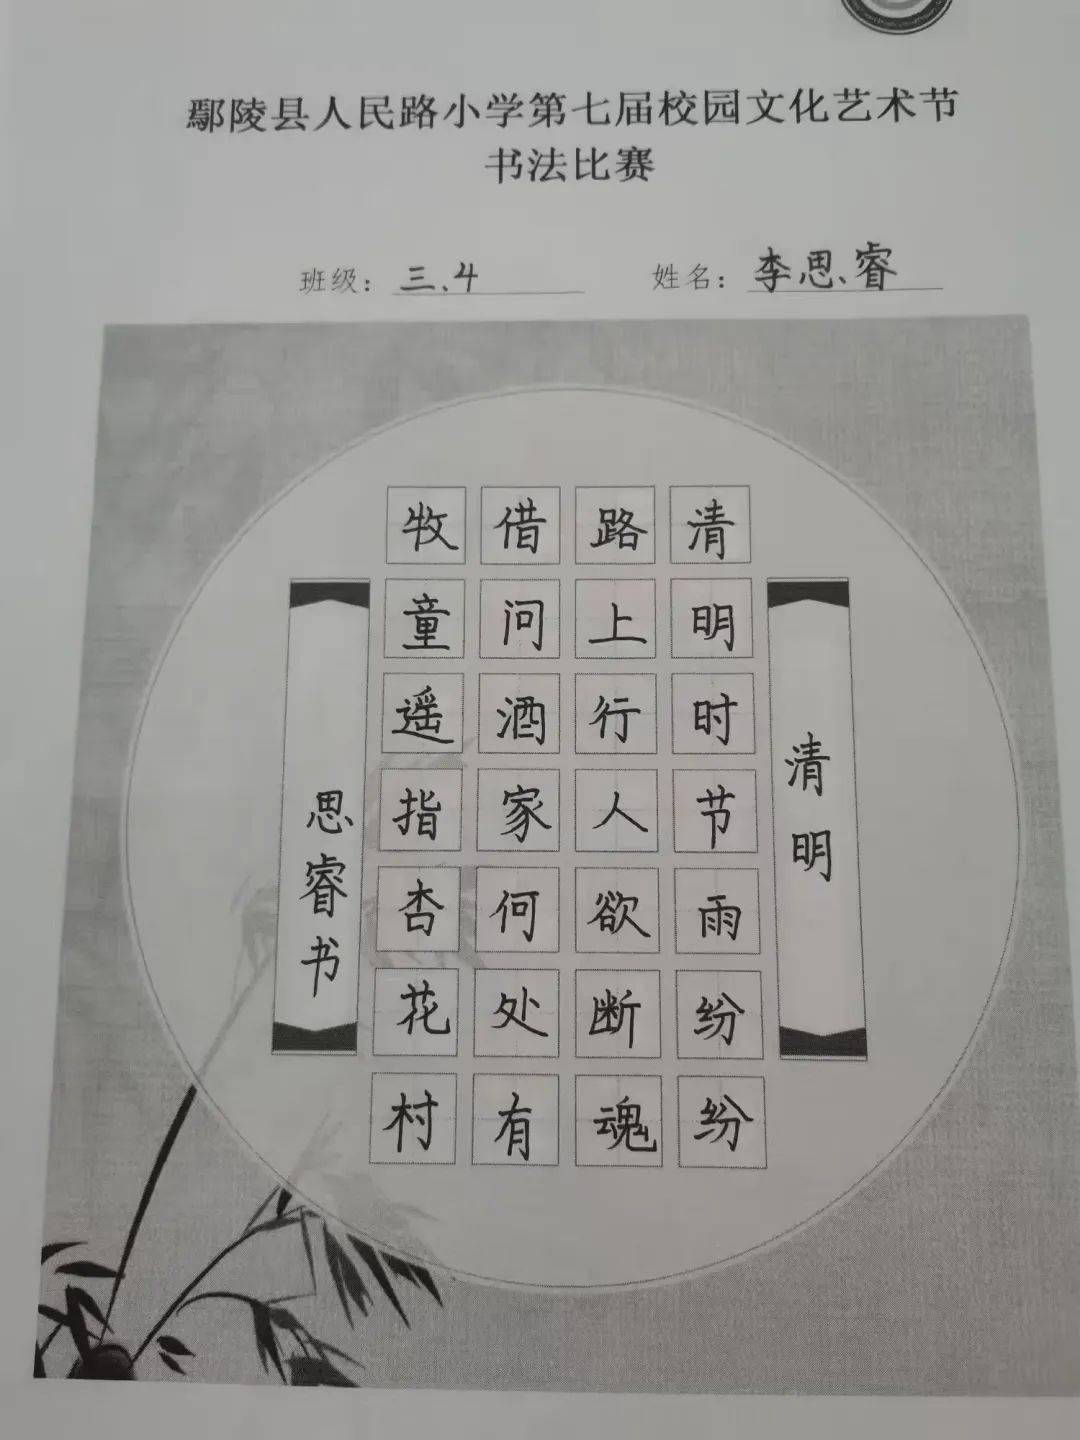 鄢陵县人民路小学第七届校园文化艺术节
书法比赛
班级：三.4
姓名：李思睿
清明
清明时节雨纷纷
路上行人欲断魂
借问酒家何处有
牧童遥指杏花村
思睿书